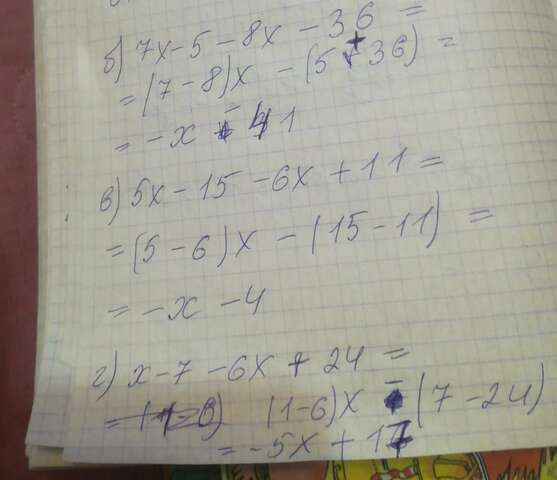 б) 7x - 5 - 8x - 36 =
= (7 - 8)x - (5 + 36) =
= -x - 41
в) 5x - 15 - 6x + 11 =
= (5 - 6)x - (15 - 11) =
= -x - 4
г) x - 7 - 6x + 24 =
= (1 - 6)x - (7 - 24)
= -5x + 17